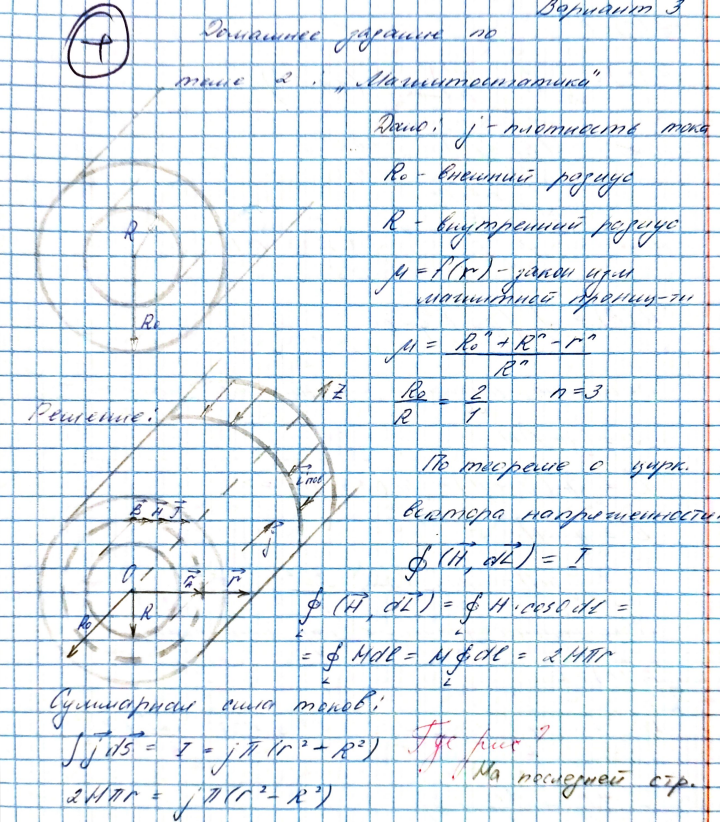 Вариант 3
Домашнее задание по
теме 2 : „Магнитостатика"
Дано: j - плотность тока
R₀ - внешний радиус
R - внутренний радиус
μ = f(r) - закон изм
магнитной прониц-ти
μ = (R₀ⁿ + Rⁿ - rⁿ) / Rⁿ
R₀ / R = 2 / 1 n = 3
R
R₀
Решение:
Z
i пов
B H J
j
O
r
R
R₀
По теореме о цирк.
вектора напряженности:
∮ (H⃗, dL⃗) = I
∮_L (H⃗, dL⃗) = ∮_L H · cos0 dl =
= ∮_L Hdl = H ∮_L dl = 2Hπr
Суммарная сила токов:
∫ j⃗ dS⃗ = I = jπ (r² - R²)
Где рис?
На последней стр.
2Hπr = jπ(r² - R²)